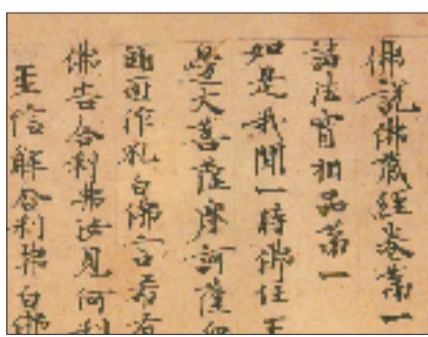 佛說佛藏經卷第一
諸法實相品第一
如是我聞一時佛住王
與大菩薩摩訶薩眾
頭面作礼白佛言希有
佛告舍利弗汝見何利
至信解舍利弗白佛